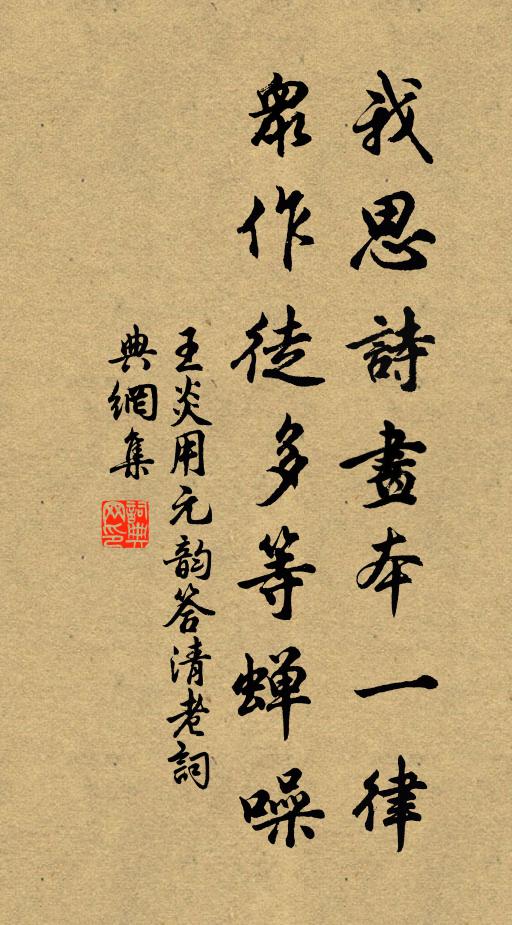 我思詩畫本一律
眾作徒多等蟬噪
王炎用元韵答清老詞
典網集
詞典網印